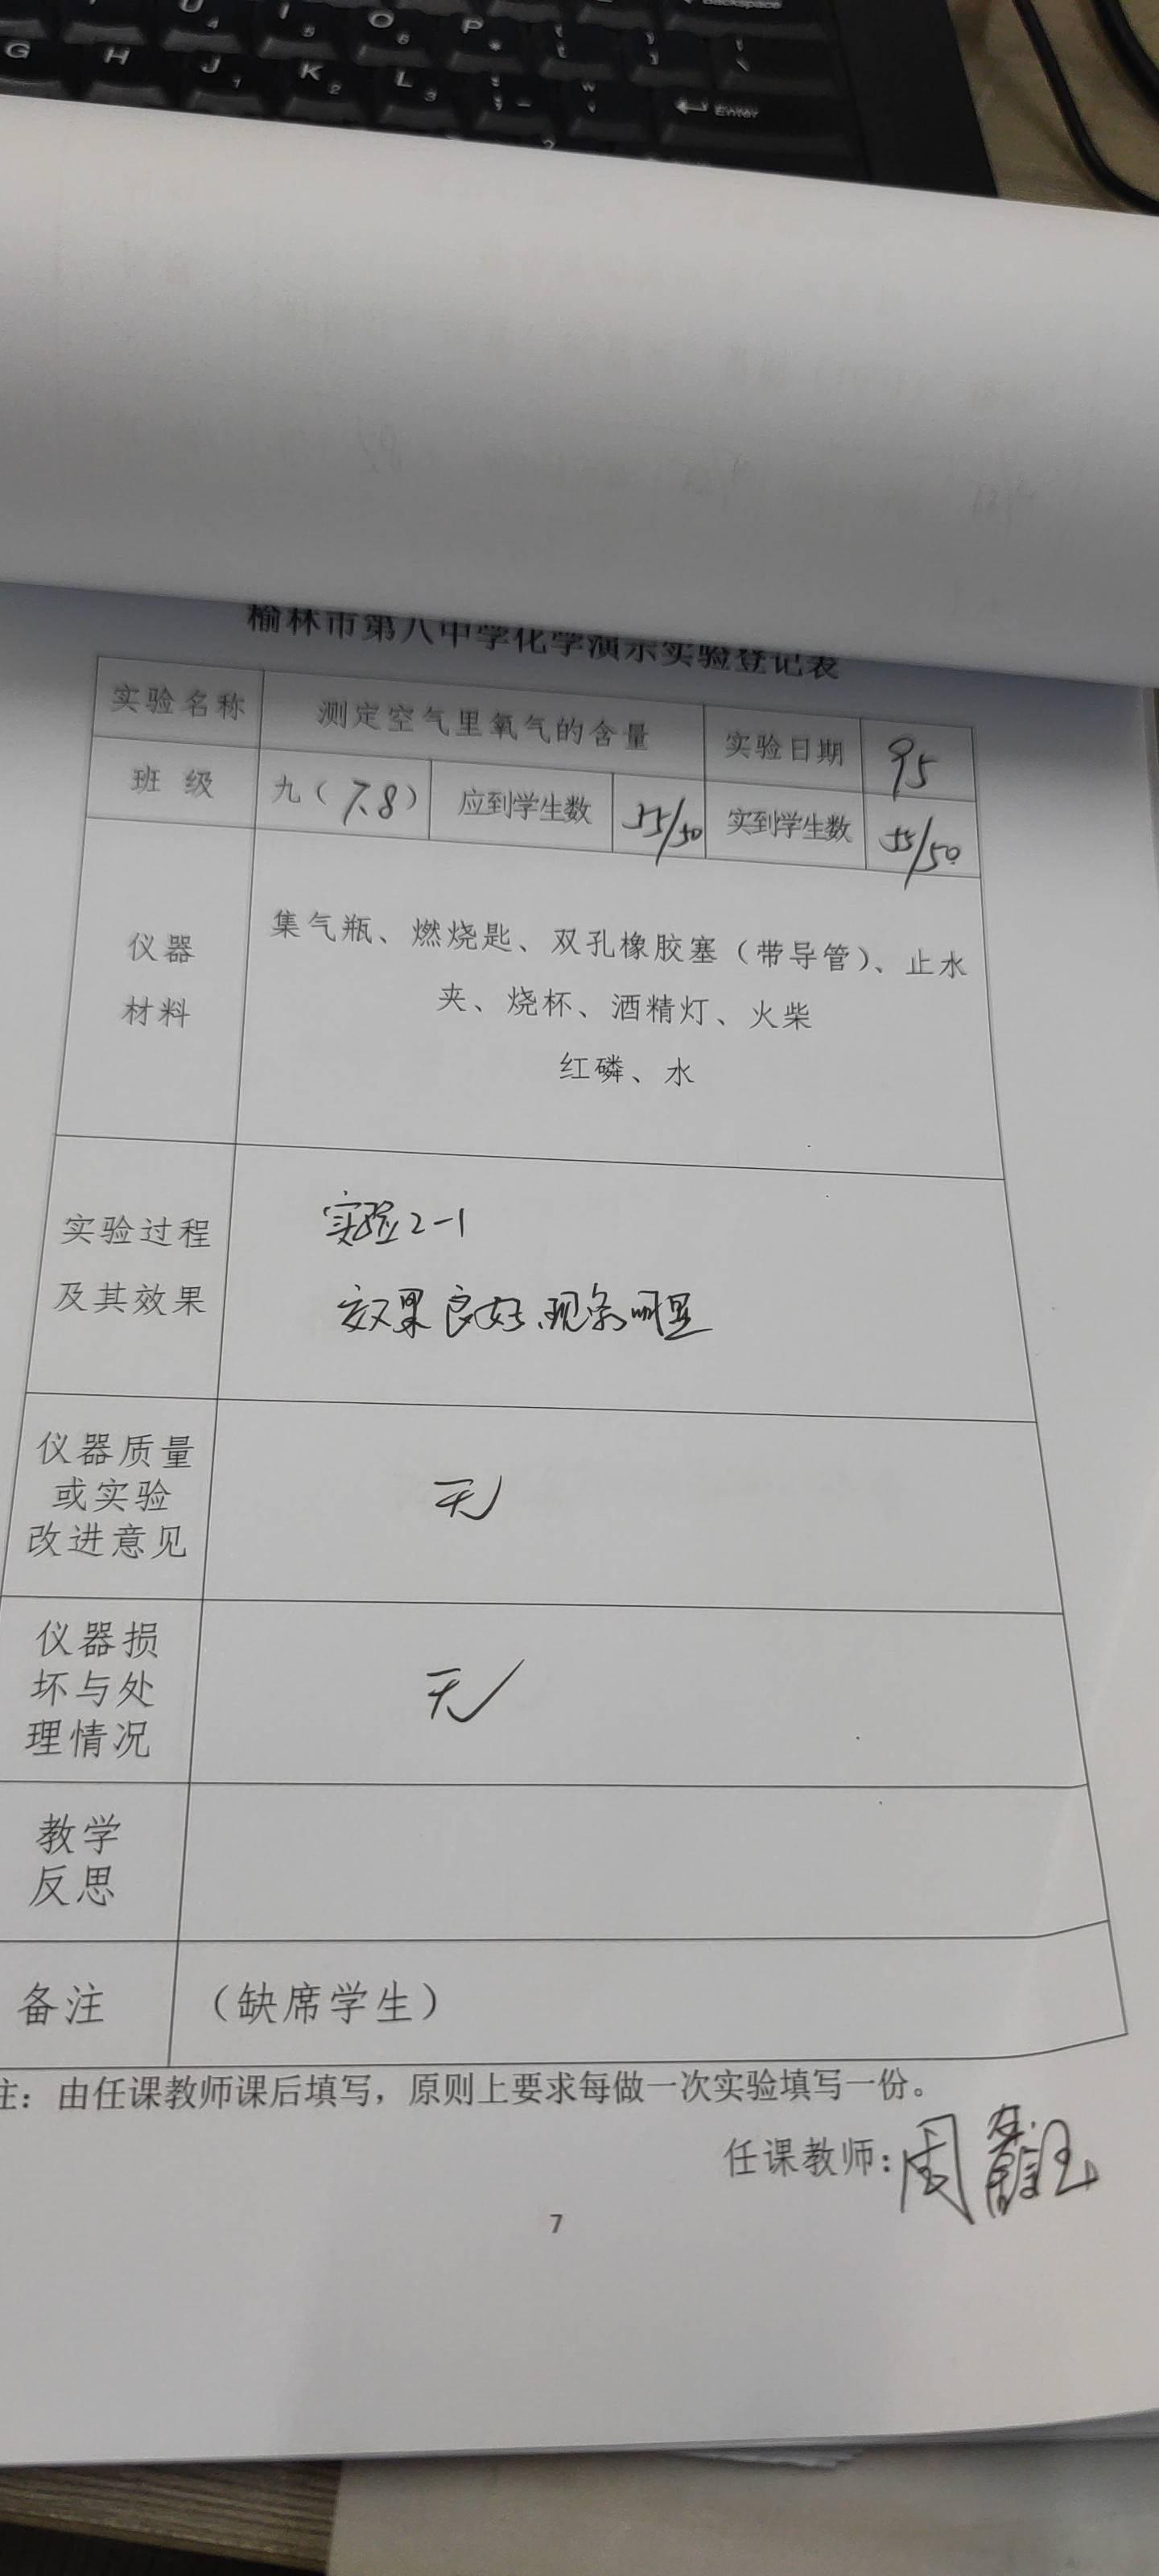 Backspace
U 4 I 5 O 6 P *
G H J 1 K 2 L 3 Enter
榆林市第八中学化学演示实验登记表
实验名称 测定空气里氧气的含量 实验日期 9.5
班 级 九（7.8） 应到学生数 55/50 实到学生数 55/50
仪器
材料
集气瓶、燃烧匙、双孔橡胶塞（带导管）、止水
夹、烧杯、酒精灯、火柴
红磷、水
实验过程
及其效果
实验2-1
效果良好、现象明显
仪器质量
或实验
改进意见
无
仪器损
坏与处
理情况
无
教学
反思
备注 （缺席学生）
注：由任课教师课后填写，原则上要求每做一次实验填写一份。
任课教师：周
7